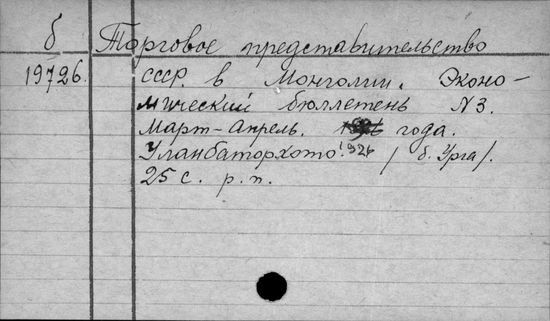 б Торговое представительство
19726. СССР. в Монголии. Эконо-
мический бюллетень N3.
Март-Апрель. года.
Уланбаторхото! 1926 /б. Урга/.
25 с. р.п.